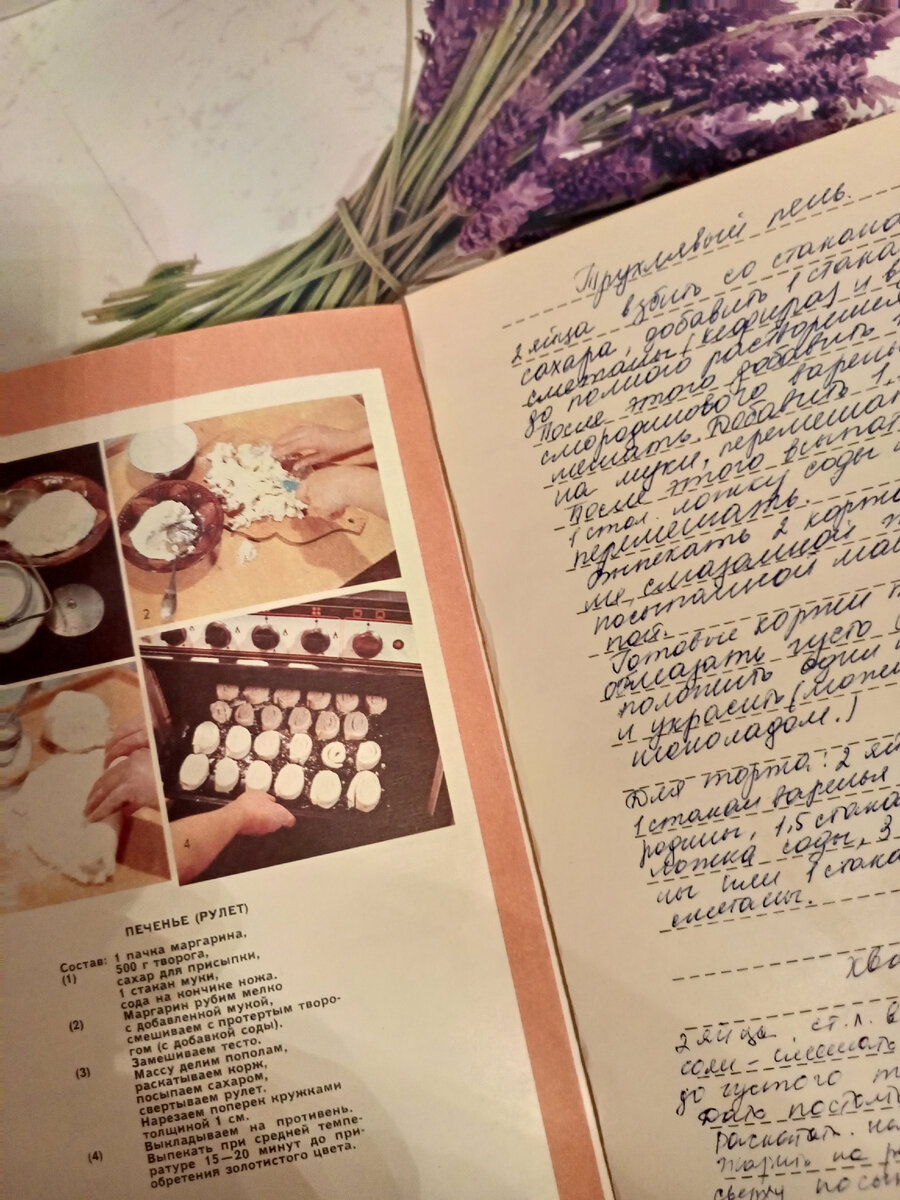 2
4
ПЕЧЕНЬЕ (РУЛЕТ)
Состав: 1 пачка маргарина,
(1) 500 г творога,
сахар для присыпки,
1 стакан муки,
сода на кончике ножа.
(2) Маргарин рубим мелко
с добавленной мукой,
смешиваем с протертым творо-
гом (с добавкой соды).
Замешиваем тесто.
(3) Массу делим пополам,
раскатываем корж,
посыпаем сахаром,
свертываем рулет.
Нарезаем поперек кружками
толщиной 1 см.
(4) Выкладываем на противень.
Выпекать при средней темпе-
ратуре 15—20 минут до при-
обретения золотистого цвета.
Трухлявый пень.
2 яйца взбить со стакано
сахара, добавить 1 стака
сметаны (кефира) и в
до полного растворения
После этого добавить
смородинового варень
мешать. Добавить 1,
на муки, перемешат
После этого
1 стол. ложку соды и
перемешать.
Выпекать 2 коржа
смазанной
посыпанной ман
пой.
Готовые коржи
обмазать густо
положить один
и украсить (можн
шоколадом.)
Для торта: 2 яй
1 стакан варенья
родины, 1,5 стака
ложка соды, 3
ны или 1 стака
сметаны.
хво
2 яйца ст. л. в
соли - смешать
до густого т
Дать постоят
раскатат. на
жарить на ра
сверху посып